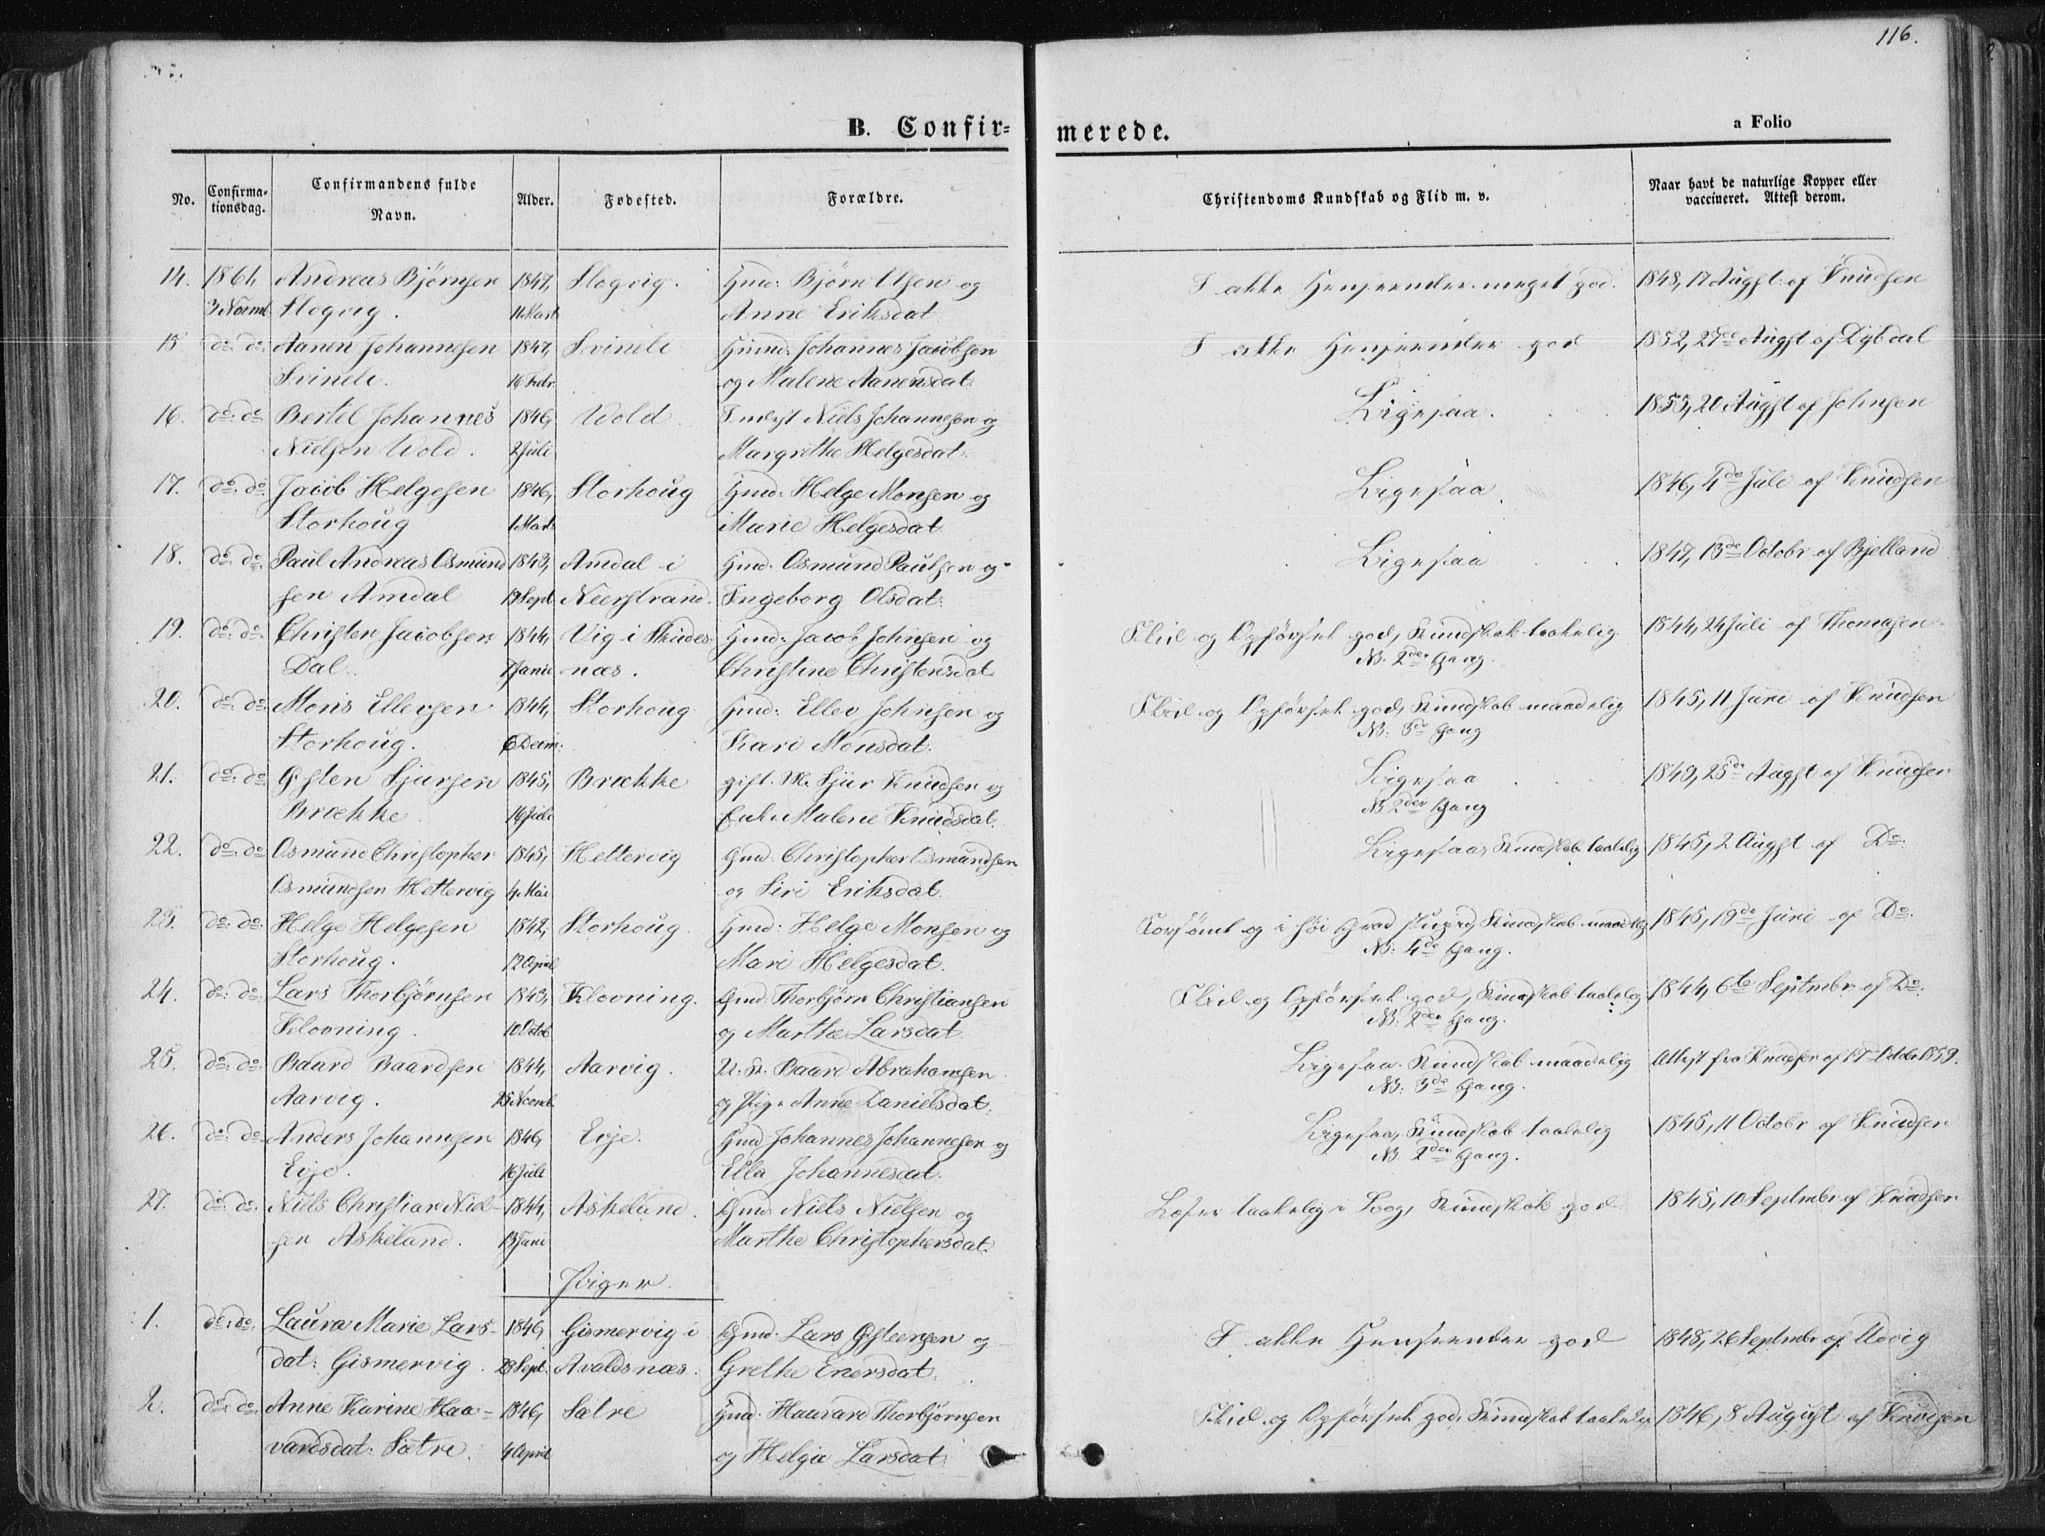 116.
B. Confir=
merede.
a Folio
No.
Confirma-
tionsdag.
Confirmandens fulde
Navn.
Alder.
Fødested.
Forældre.
Christendoms Kundskab og Flid m. v.
Naar havt de naturlige Kopper eller
vaccineret. Attest derom.
14. 1861, Andreas Bjørnsen 1847, Stogvig. Gmd: Bjørn Olsen og I alle Henseender meget god. 1848, 17 Augst. af Knudsen
3 Novmb. Stogvig. Anne Eriksdat.
15 do: do: Aanen Johannesen 1847, Svineli Gmd. Johannes Jacobsen I alle Henseender god 1852, 27de Augst af Dybdal
Svineli. 16 Febr. og Malene Aanensdat:
16. do: do: Bertel Johannes 1846, Wold Inderst Niels Johannesen og Ligesaa. 1853, 20 Augst af Johnsen
Nielsen Wold. 2 Juli Margrethe Helgesdat:
17. do: do: Jacob Helgesen 1846, Storhoug Gmd: Helge Monsen og Ligesaa. 1846, 4de Juli af Knudsen
Storhoug 1 Mart Marie Helgesdat:
18. do: do: Paul Andreas Osmund 1843, Amdal i Gmd. Osmund Paulsen og Ligesaa 1847, 13de Octobr af Bjelland
sen Amdal 19 Sept. Neerstrand. Ingeborg Olsdat:
19. do: do: Christen Jacobsen 1844, Vig i Skudes- Gmd: Jacob Johnsen og Flid og Opførsel god, Kundskab taalelig 1844, 24 Juli af Thomasen
Dal. 7 Janu næs. Christine Christensdat: NB. 2den Gang.
20. do: do: Mons Ellevsen 1844, Storhoug Gmd: Ellev Johnsen og Flid og Opførsel god, Kundskab maadelig 1845, 11 Juni af Knudsen
Storhoug. 6 Decm: Kari Monsdat. NB: 3de Gang
21. do: do: Østen Sjursen 1845, Brække gift. M. Sjur Knudsen og Ligesaa 1849, 25de Augst af Knudsen
Brække 14 Juli Enke Malene Knudsdat. NB 2den Gang
22. do: do: Osmund Christopher 1845, Hettervig Gmd. Christopher Osmundsen Ligesaa, Kundskab taalelig 1845, 2 Augst af Do:
Osmundsen Hettervig 4 Mai og Siri Eriksdat.
23. do: do: Helge Helgesen 1842, Storhoug. Gmd: Helge Monsen og Forsømt og i høi Grad stupid, Kundskab maadelig 1845, 19de Juni af Do:
Storhoug. 12 April Mari Helgesdat. NB: 4de Gang.
24. do: do: Lars Thorbjørnsen 1843, Klovning. Gmd: Thorbjørn Christiansen Flid og Opførsel god, Kundskab taalelig 1844, 6te Septmbr af Do:
Klovning. 10 Octob og Marthe Larsdat. NB: 2den Gang.
25. do: do: Baard Baardsen 1844, Aarvig. U. K. Baard Abrahamsen Ligesaa. Kundskab maadelig Attest fra Knudsen af 19 Octobr 1859.
Aarvig. 25 Novmb. og Pige Anne Danielsdat: NB: 3de Gang.
26. do: do: Anders Johannsen 1846, Eije. Gmd Johannes Johannesen og Ligesaa, Kundskab taalelig 1845, 11 Octobr af Knudsen
Eije. 16 Juli Ella Johannesdat. NB. 2den Gang.
27. do: do: Niels Christian Niel- 1844, Askeland. Gmd: Niels Nielsen og Læser taalelig i Bog, Kundskab god 1845, 10 Septmbr af Knudsen
sen Askeland. 13 Juni Marthe Christophersdat.
Piger.
1. do: do: Laura Marie Lars- 1846, Gismervig i Gmd: Lars Østensen og I alle Henseender god 1848, 26 Septmbr af Utvig
dat: Gismervig. 28 Sept. Avaldsnæs. Grethe Enersdat.
2. do: do: Anne Karine Haa- 1846, Sætre Gmd: Haavard Thorbjørnsen Flid og Opførsel god, Kundskab taalelig 1846, 8 August af Knudsen
vardsdat: Sætre. 4 April og Helga Larsdat: